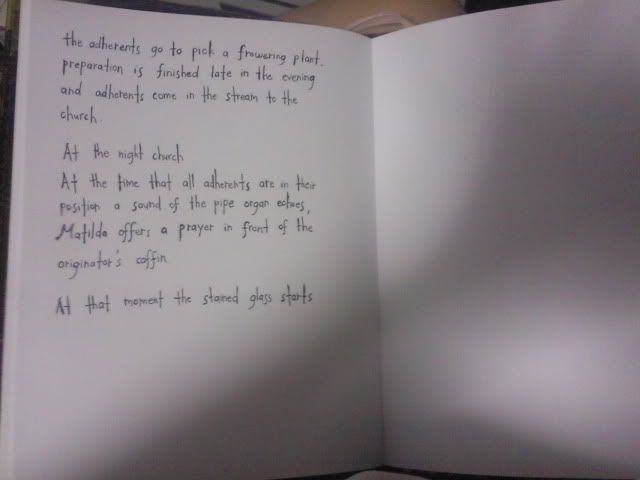 the adherents go to pick a frowering plant.
preparation is finished late in the evening
and adherents come in the stream to the
church.
At the night church
At the time that all adherents are in their
position a sound of the pipe organ echoes,
Matilda offers a prayer in front of the
originator's coffin
At that moment the stained glass starts